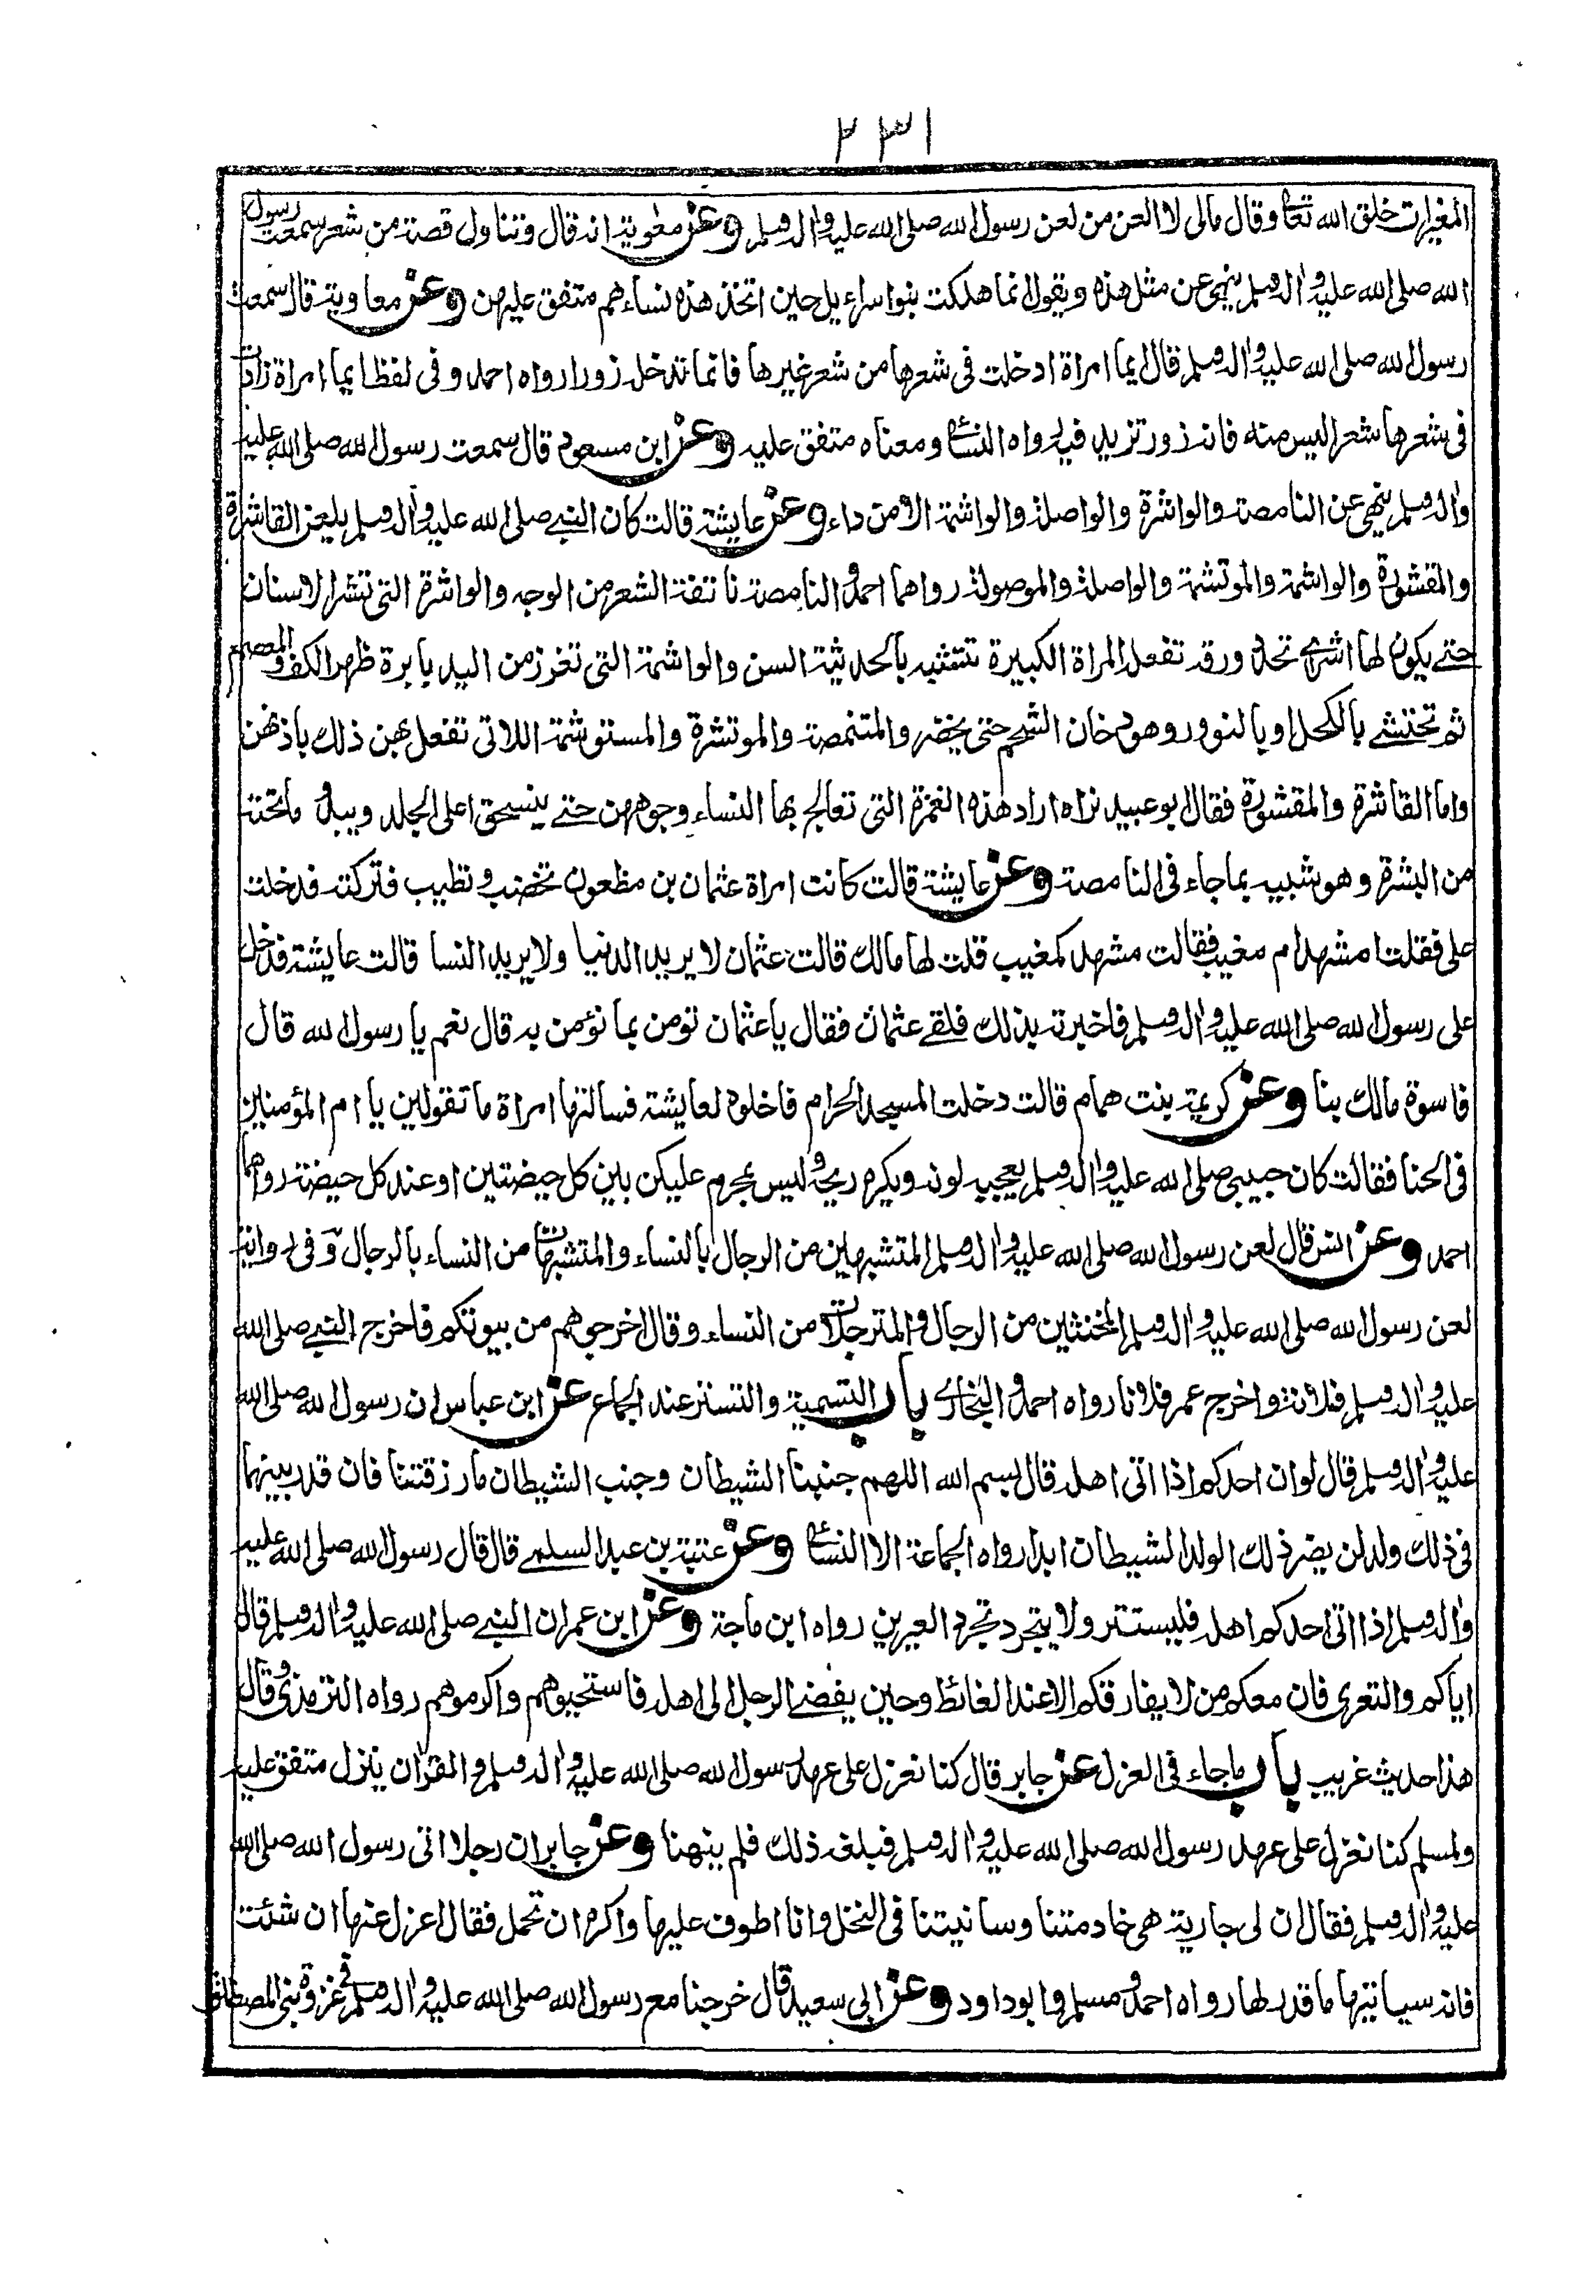 ٢٣١
المغيرات خلق الله تعالى وقال مالى لا العن من لعن رسول الله صلى الله عليه واله وسلم وعن معوية انه قال وتناول قصة من شعر سمعت رسول
الله صلى الله عليه واله وسلم ينهى عن مثل هذه ويقول انما هلكت بنوا سراءيل حين اتخذ هذه نساءهم متفق عليهن وعن معاوية قال سمعت
رسول الله صلى الله عليه واله وسلم قال ايما امراة ادخلت فى شعرها من شعر غيرها فانما تدخله زورا رواه احمد وفى لفظ ايما امراة زادت
فى شعرها شعرا ليس منه فانه زور تزيد فيه رواه النسائى ومعناه متفق عليه وعن ابن مسعود قال سمعت رسول الله صلى الله عليه
واله وسلم ينهى عن النامصة والواشرة والواصلة والواشمة الا من داء وعن عايشة قالت كان النبي صلى الله عليه واله وسلم يلعن القاشرة
والمقشورة والواشمة والموتشمة والواصلة والموصولة رواهما احمد والنامصة ناتفة الشعر من الوجه والواشرة التى تنشر الاسنان
حتى يكون لها اشراى تحدد ورقة تفعله المراة الكبيرة تتشبه بالحديثة السن والواشمة التى تغرز من اليد بابرة ظهر الكف والمعصم
ثم تحتشى بالكحل او بالنوور وهو دخان الشحم حتى يخضر والمتنمصة والموتشرة والمستوشمة اللاتى تفعل بهن ذلك باذنهن
واما القاشرة والمقشورة فقال ابو عبيد نراه اراد هذه الغمزة التى تعالج بها النساء وجوههن حتى ينسحق اعلى الجلد ويبدو ماتحته
من البشرة وهو شبيه بما جاء فى النامصة وعن عايشة قالت كانت امراة عثمان بن مظعون تخضب وتطيب فتركته فدخلت
على فقلت امشهد ام مغيب فقالت مشهد كمغيب قلت لها مالك قالت عثمان لا يريد الدنيا ولا يريد النسا قالت عايشة فدخل
على رسول الله صلى الله عليه واله وسلم فاخبرته بذلك فلقى عثمان فقال يا عثمان تومن بما نؤمن به قال نعم يا رسول الله قال
فاسوة مالك بنا وعن كريمة بنت همام قالت دخلت المسجد الحرام فاخلوه لعايشة فسالتها امراة ما تقولين يا ام المؤمنين
فى الحنا فقالت كان حبيبى صلى الله عليه واله وسلم يعجبه لونه ويكره ريحه وليس بمحرم عليكن بين كل حيضتين او عند كل حيضة رواهما
احمد وعن انس قال لعن رسول الله صلى الله عليه واله وسلم المتشبهين من الرجال بالنساء والمتشبهات من النساء بالرجال وفى رواية
لعن رسول الله صلى الله عليه واله وسلم المخنثين من الرجال والمترجلات من النساء وقال اخرجوهم من بيوتكم فاخرج النبي صلى الله
عليه واله وسلم فلانة واخرج عمر فلانا رواه احمد والبخارى باب التسمية والتستر عند الجماع عن ابن عباس ان رسول الله صلى الله
عليه واله وسلم قال لوان احدكم اذا اتى اهله قال بسم الله اللهم جنبنا الشيطان وجنب الشيطان ما رزقتنا فان قدر بينهما
فى ذلك ولد لن يضر ذلك الولد الشيطان ابدا رواه الجماعة الا النسائى وعن عتبة بن عبد السلمى قال قال رسول الله صلى الله عليه
واله وسلم اذا اتى احدكم اهله فليستتر ولا يتجرد تجرد العيرين رواه ابن ماجة وعن ابن عمر ان النبي صلى الله عليه واله وسلم قال
اياكم والتعرى فان معكم من لا يفارقكم الا عند الغائط وحين يفضى الرجل الى اهله فاستحيوهم واكرموهم رواه الترمذى وقال
هذا حديث غريب باب ماجاء فى العزل عن جابر قال كنا نعزل على عهد رسول الله صلى الله عليه واله وسلم والقران ينزل متفق عليه
ولمسلم كنا نعزل على عهد رسول الله صلى الله عليه واله وسلم فبلغه ذلك فلم ينهنا وعن جابر ان رجلا اتى رسول الله صلى الله
عليه واله وسلم فقال ان لى جارية هى خادمتنا وسانيتنا فى النخل وانا اطوف عليها واكره ان تحمل فقال اعزل عنها ان شئت
فانه سياتيها ما قدر لها رواه احمد ومسلم وابو داود وعن ابى سعيد قال خرجنا مع رسول الله صلى الله عليه واله وسلم فى غزوة بنى المصطلق